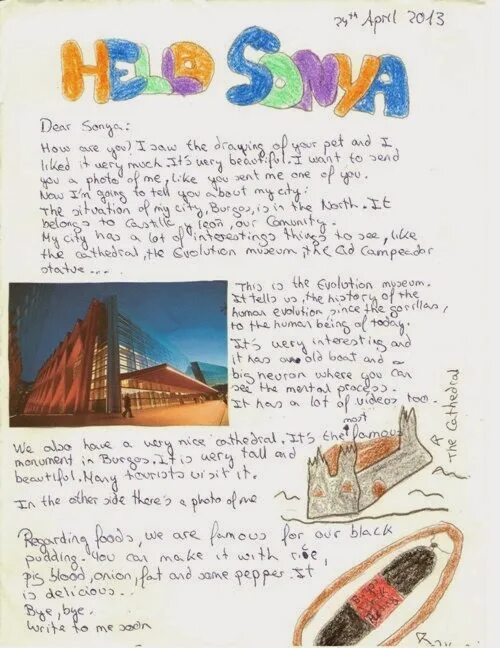 24th April 2013
HELLO SONYA
Dear Sonya:
How are you? I saw the drawing of your pet and I
liked it very much. It's very beautiful. I want to send
you a photo of me, like you sent me one of you.
Now I'm going to tell you about my city:
The situation of my city, Burgos, is in the North. It
belongs to Castilla y León, our Comunity.
My city has a lot of interestings things to see, like
the cathedral, the Evolution museum, the Cid Campeador
statue....
This is the Evolution museum.
It tells us, the history of the
human evolution since the gorillas,
to the human being of today.
It's very interesting and
it has an old boat and a
big neuron where you can
see the mental process.
It has a lot of videos too.
We also have a very nice cathedral. It's the most famous
monument in Burgos. It is very tall and
beautiful. Many tourists visit it.
In the other side there's a photo of me
The Cathedral
Regarding foods, we are famous for our black
pudding. You can make it with rice,
pig blood, onion, fat and some pepper. It
is delicious...
Bye, bye.
Write to me soon